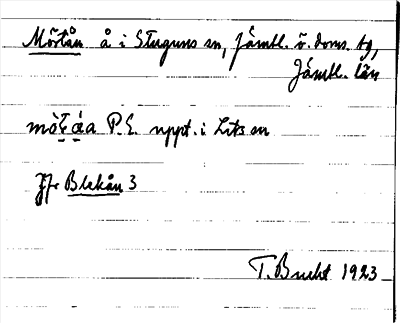 Mörtån å i Stuguns sn, Jämtl. ö. doms. tg,
Jämtl. län
P.E. uppt. i Lits sn
Jfr Blekån 3
T. Bucht 1923